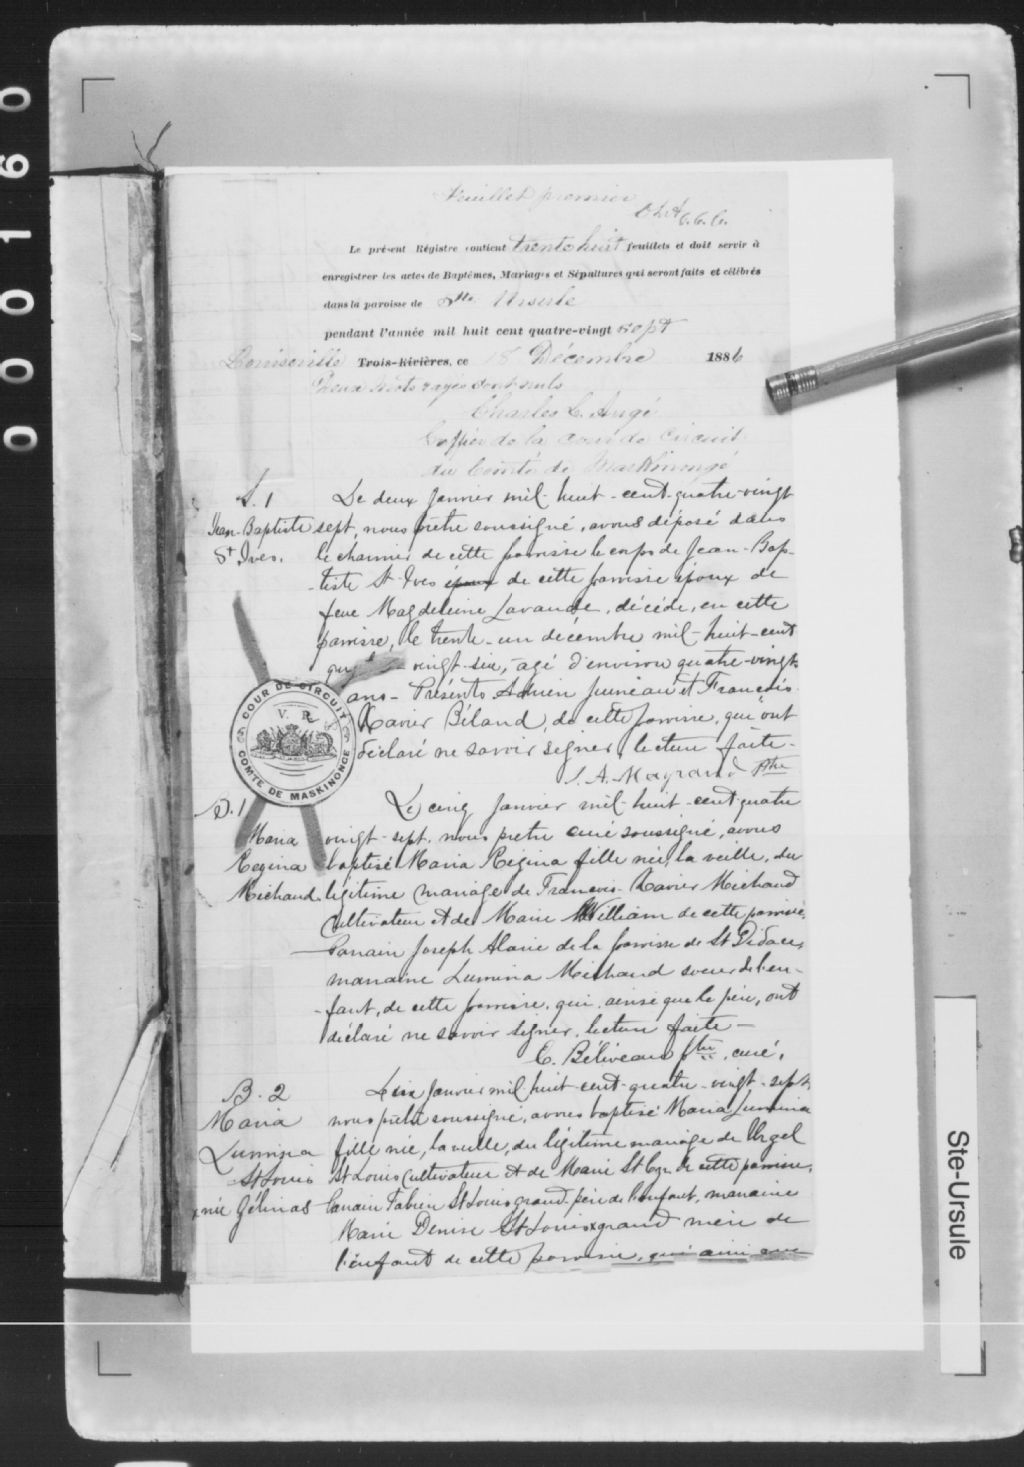 000160
Feuillet premier
C.C.C.
Le présent Régistre contient trente huit feuillets et doit servir à
enregistrer les actes de Baptêmes, Mariages et Sépultures qui seront faits et célébrés
dans la paroisse de Ste Ursule
pendant l'année mil huit cent quatre-vingt sept
Louiseville Trois-Rivières, ce 18 Décembre 1886
Deux mots rayés sont nuls
Charles C. Augé
Greffier de la cour de Circuit
du Comté de Maskinongé
S. 1 Le deux Janvier mil-huit-cent-quatre-vingt
Jean-Baptiste sept, nous prêtre soussigné, avons déposé dans
St Ives. le charnier de cette paroisse le corps de Jean-Bap-
tiste St Ives époux de cette paroisse époux de
feue Magdeleine Lavande, décédé, en cette
paroisse, le trente-un décembre mil-huit-cent
vingt-six, agé d'environ quatre-vingt
ans- Présents Juneau et François
Xavier Béland, de cette paroisse, qui ont
déclaré ne savoir signer, lecture faite-
Mayrand Ptre
COUR DE CIRCUIT
V. R.
COMTE DE MASKINONGE
B. 1 Le cinq Janvier mil-huit-cent-quatre
Maria vingt-sept, nous prêtre curé soussigné, avons
Regina baptisé Maria Regina fille née, la veille, du
Michaud légitime mariage de Francois-Xavier Michaud
Cultivateur et de Marie William de cette paroisse,
Parrain Joseph Alarie de la paroisse de St Didace,
marraine Lumina Michaud soeur de l'en-
-fant, de cette paroisse, qui, ainsi que le père, ont
déclaré ne savoir signer, lecture faite-
C. Béliveau ptre, curé,
B. 2 Le six Janvier mil-huit-cent-quatre-vingt-sept
Maria nous prêtre soussigné, avons baptisé Maria Lumina
Lumina fille née, la veille, du légitime mariage de Urgel
St Louis St Louis Cultivateur et de Marie St Cyr de cette paroisse,
x née Gélinas Parrain Fabien St Louis grand-père de l'enfant, marraine
Marie Denise St Louis x grand mère de
l'enfant de cette paroisse, qui ainsi que
Ste-Ursule